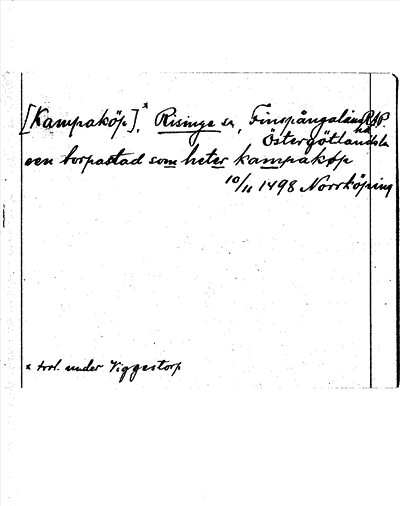 [Kampaköp],* Risinge sn, Finspångaläns hd RAP.
Östergötlands ln
een torpastad som heter kampakøp
10/11 1498 Norrköping
* trol. under Viggestorp